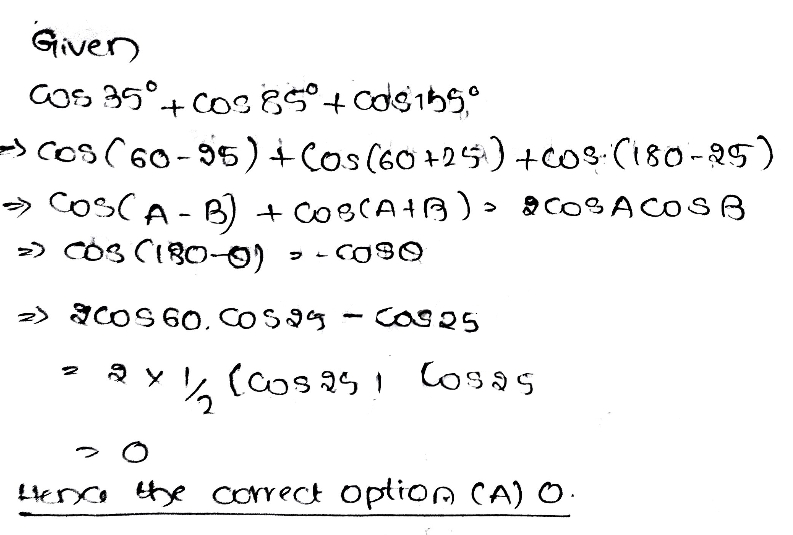 Given
cos 35° + cos 85° + cos 155°
⇒ cos (60 - 25) + cos (60 + 25) + cos (180 - 25)
⇒ cos (A - B) + cos (A + B) = 2 cos A cos B
⇒ cos (180 - θ) = - cos θ
⇒ 2 cos 60. cos 25 - cos 25
= 2 × 1/2 (cos 25) cos 25
= 0
Hence the correct option (A) 0.